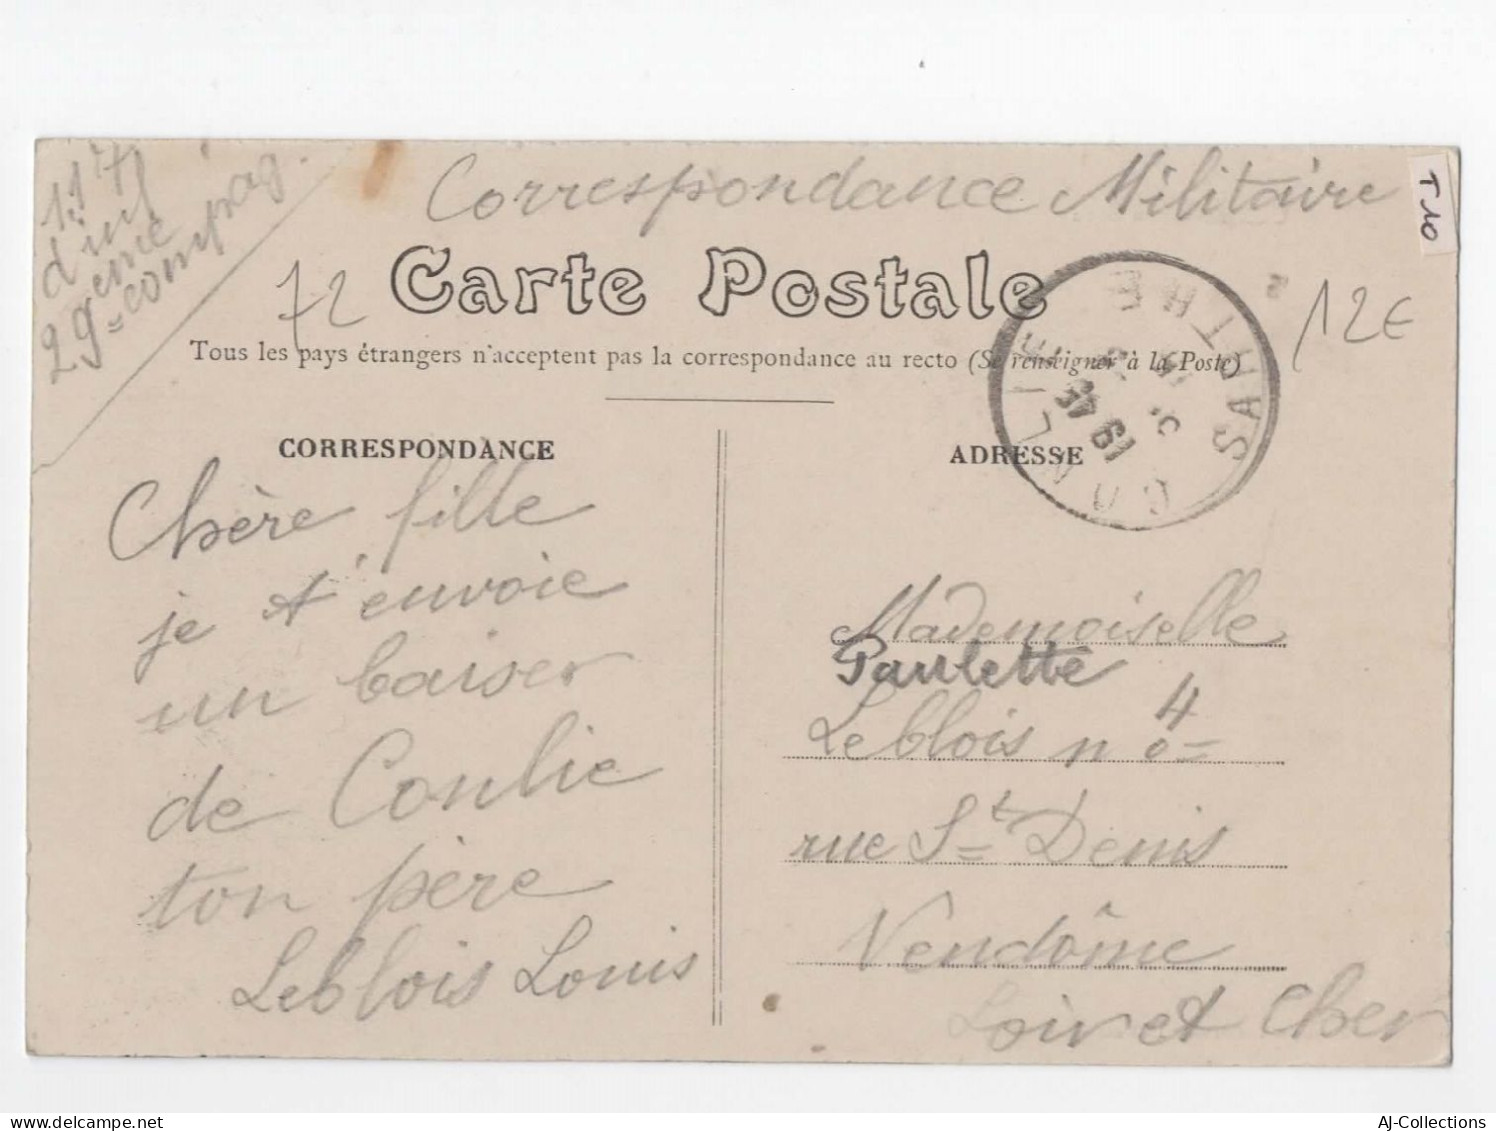 117
d'inf
29eme compag.
Correspondance Militaire
T 10
72
Carte Postale
12€
Tous les pays étrangers n'acceptent pas la correspondance au recto (Se renseigner à la Poste)
CONLIE
SARTHE
CORRESPONDANCE
ADRESSE
Chère fille
je t'envoie
un baiser
de Conlie
ton père
Leblois Louis
Mademoiselle
Paulette
Leblois n o= 4
rue St Denis
Vendôme
Loir et Cher
AJ-Collections